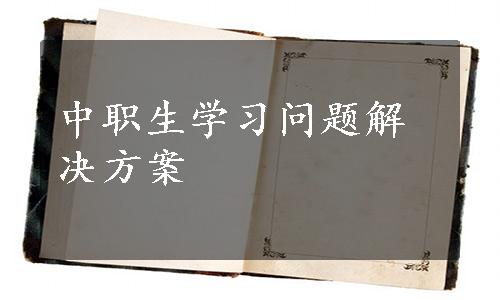 中职生学习问题解
决方案